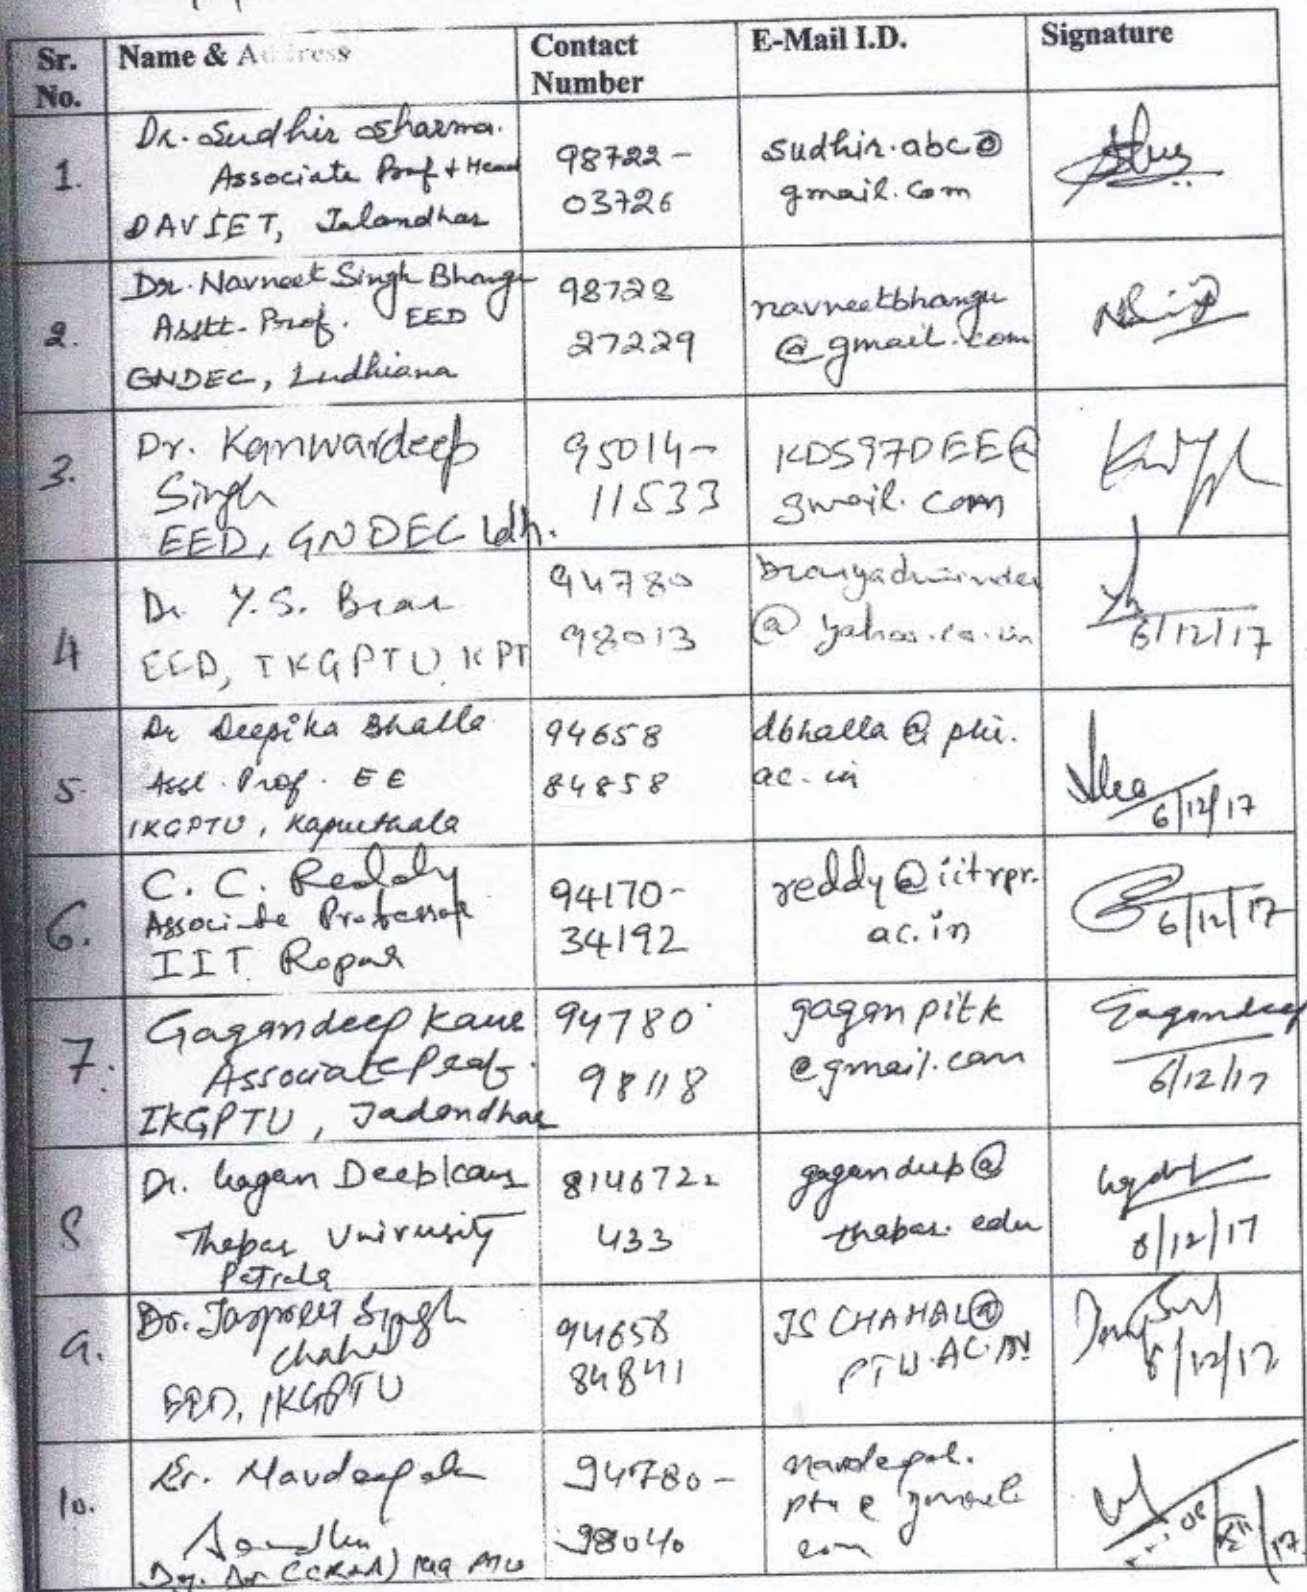 Sr. No. Name & Address Contact Number E-Mail I.D. Signature
1. Dr. Sudhir Sharma.
Associate Prof + Head
DAVIET, Jalandhar
98722-
03726
sudhir.abc@
gmail.com
2. Dr. Navneet Singh Bhangu
Asstt. Prof. EED
GNDEC, Ludhiana
98728
27229
navneetbhangu
@gmail.com
3. Dr. Kanwardeep
Singh
EED, GNDEC Ldh.
95014-
11533
KDS97DEE@
gmail.com
4 Dr. Y.S. Brar
EED, IKGPTU, KPT
94780
98013
braryadwinder
@yahoo.co.in
6/12/17
5 Dr Deepika Bhalla
Asst. Prof. EE
IKGPTU, Kapurthala
94658
84858
dbhalla@ptu.
ac.in
6/12/17
6. C. C. Reddy
Associate Professor
IIT Ropar
94170-
34192
reddy@iitrpr.
ac.in
6/12/17
7. Gagandeep Kaur
Associate Prof.
IKGPTU, Jadandhar
94780
98118
gaganpitk
@gmail.com
Gagandeep
6/12/17
8 Dr. Gagan Deep Kaur
Thapar University
Patiala
8146722
433
gagandeep@
thapar.edu
8/12/17
9. Dr. Jaspreet Singh
Chahal
EED, IKGPTU
94658
84841
JSCHAHAL@
PTU.AC.IN
8/12/17
10. Er. Navdeepak
Sandhu
94780-
98040
navdeepak.
ptu@gmail
com